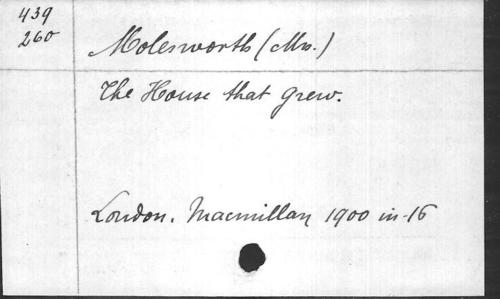 439
260
Molesworth (Mrs.)
The House that grew.
London. Macmillan 1900 in-16